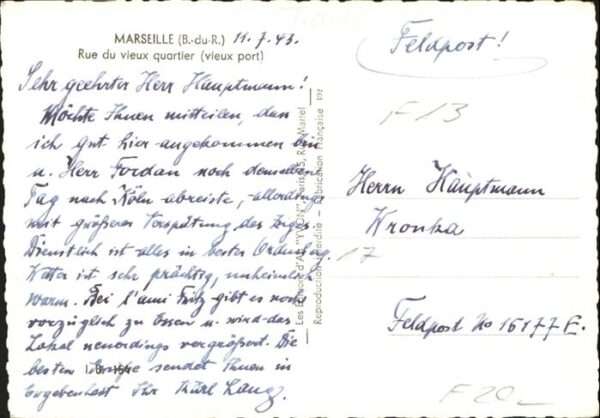 MARSEILLE (B.-du-R.) 11.7.43.
Rue du vieux quartier (vieux port)
Sehr geehrter Herr Hauptmann!
Möchte Ihnen mitteilen, dass
ich gut hier angekommen bin
u. Herr Jordan noch demselben
Tag nach Köln abreiste, allerdings
mit größerer Verspätung des Zuges.
Dienstlich ist alles in bester Ordnung.
Wetter ist sehr prächtig, unheimlich
warm. Bei l'ami Fritz gibt es noch
vorzüglich zu Essen u. wird das
Lokal neuerdings vergrößert. Die
besten Grüsse sendet Ihnen in
Ergebenheit Ihr Karl Lang.
Reproduction Interdite — Fabrication Française
Feldpost!
F 13
Herrn Hauptmann
Kronka
17
Feldpost No 16177 E.
F 20